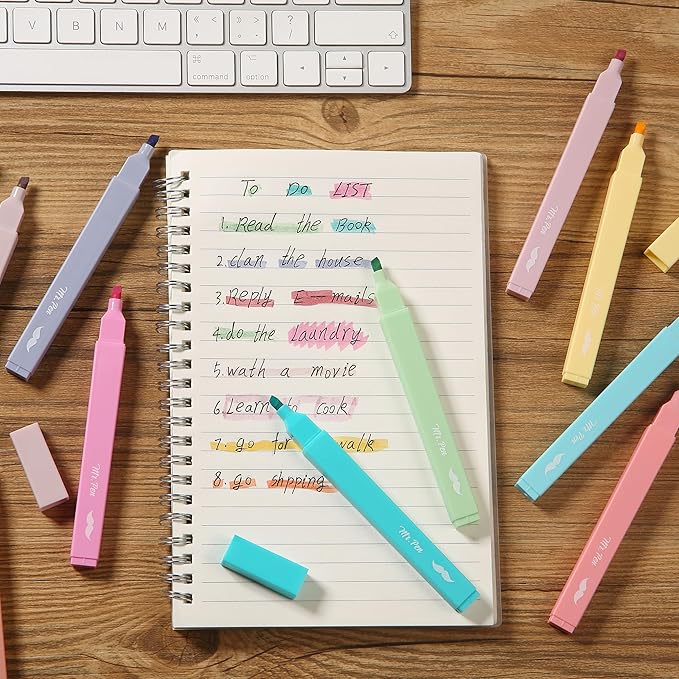 Z X C V B N M < , > . ? / shift
command option
To Do LIST
1. Read the Book
2. clan the house
3. Reply E-mails
4. do the Laundry
5. wath a movie
6. Learn to cook
7. go for walk
8. go shpping
Mr. Pen
Mr. Pen
Mr. Pen
Mr. Pen
Mr. Pen
Mr. Pen
Mr. Pen
Mr. Pen